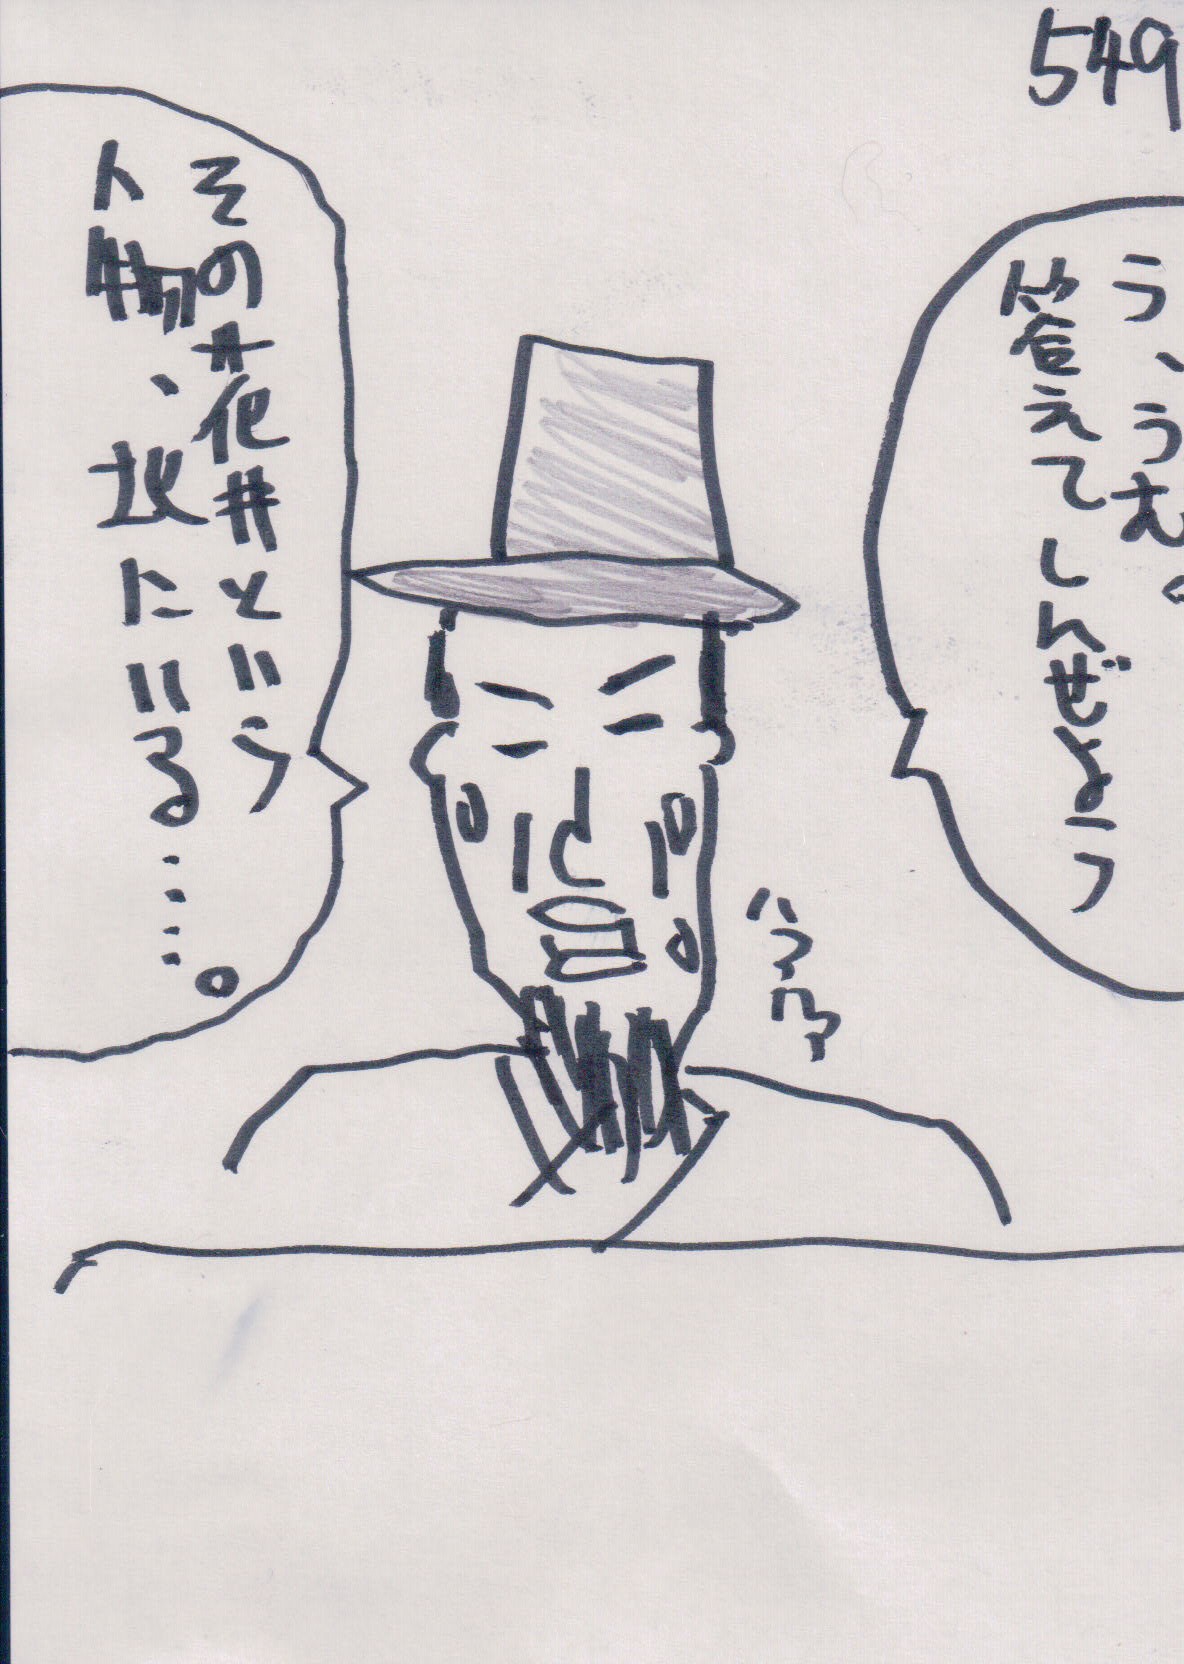 549
う、うむ。
答えてしんぜよう
ハァ
ハァ
その花井という
人物、故人にいる……。